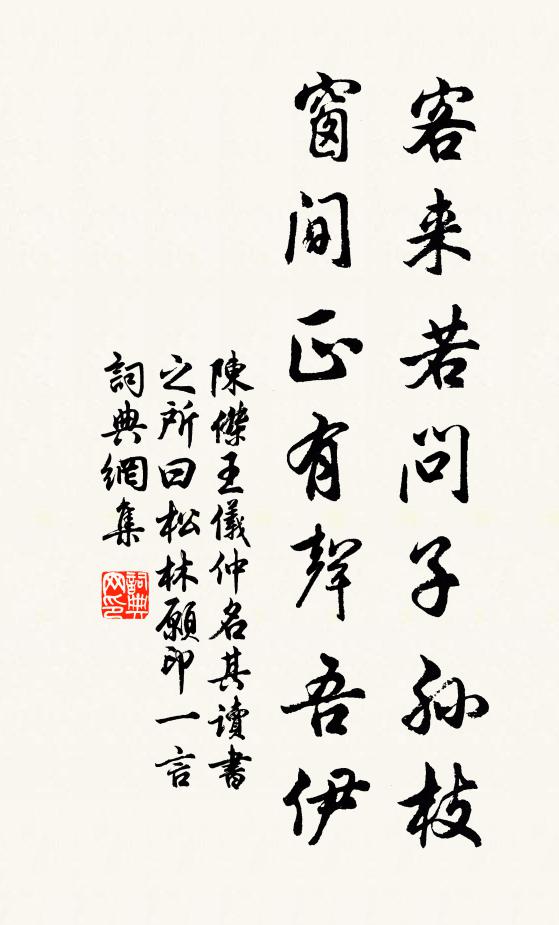 客来若問子孫枝
窗间正有聲吾伊
陳傑王儀仲名其讀書
之所曰松林願印一言
詞典網集
詞典
网印